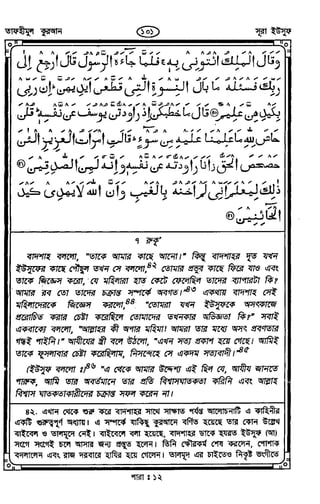 তাফহীমুল কুরআন
১০১
সূরা ইউসুফ
وَقَالَ الْمَلِكُ ائْتُونِي بِهِ ۚ فَلَمَّا جَاءَهُ الرَّسُولُ قَالَ ارْجِعْ إِلَىٰ
رَبِّكَ فَسْئَلْهُ مَا بَالُ النِّسْوَةِ الَّتِي قَطَّعْنَ أَيْدِيَهُنَّ ۚ إِنَّ رَبِّي
بِكَيْدِهِنَّ عَلِيمٌ ۝ قَالَ مَا خَطْبُكُنَّ إِذْ رَاوَدْتُنَّ يُوسُفَ عَنْ نَفْسِهِ ۚ قُلْنَ
حَاشَ لِلَّهِ مَا عَلِمْنَا عَلَيْهِ مِنْ سُوءٍ ۚ قَالَتِ امْرَأَتُ الْعَزِيزِ الْئٰنَ
حَصْحَصَ الْحَقُّ أَنَا رَاوَدْتُهُ عَنْ نَفْسِهِ وَإِنَّهُ لَمِنَ الصَّدِقِينَ ۝
ذَٰلِكَ لِيَعْلَمَ أَنِّي لَمْ أَخُنْهُ بِالْغَيْبِ وَأَنَّ اللَّهَ لَا يَهْدِي كَيْدَ
الْخَائِنِينَ ۝
৭ রুকূ'
বাদশাহ বললো, "তাকে আমার কাছে আনো।" কিন্তু বাদশাহর দূত যখন
ইউসুফের কাছে পৌঁছুল তখন সে বললো,৪২ তোমার প্রভুর কাছে ফিরে যাও এবং
তাকে জিজ্ঞেস করো, যে মহিলারা হাত কেটে ফেলেছিল তাদের ব্যাপারটা কি?
আমার রব তো তাদের চক্রান্ত সম্পর্কে অবগত।৪৩ একথায় বাদশাহ সেই
মহিলাদেরকে জিজ্ঞেস করলো,৪৪ "তোমরা যখন ইউসুফকে অসৎকাজে
প্ররোচিত করার চেষ্টা করেছিলে তোমাদের তখনকার অভিজ্ঞতা কি?" সবাই
একবাক্যে বললো, "আল্লাহর কী অপার মহিমা! আমরা তার মধ্যে অসৎ প্রবণতার
গন্ধই পাইনি।" আযীযের স্ত্রী বলে উঠলো, "এখন সত্য প্রকাশ হয়ে গেছে। আমিই
তাকে ফুসলাবার চেষ্টা করেছিলাম, নিসন্দেহে সে একদম সত্যবাদী।"৪৫
(ইউসুফ বললো ঃ)৪৬ "এ থেকে আমার উদ্দেশ্য এই ছিল যে, আযীয জানতে
পারুক, আমি তার অবর্তমানে তার প্রতি বিশ্বাসঘাতকতা করিনি এবং আল্লাহ
বিশ্বাস ঘাতকতাকারীদের চক্রান্ত সফল করেন না।
৪২. এখান থেকে শুরু করে বাদশাহর সাথে সাক্ষাত পর্যন্ত আলোচনাটি এ কাহিনীর
একটি গুরুত্বপূর্ণ অধ্যায়। এ সম্পর্কে যাকিছু কুরআনে বর্ণিত হয়েছে তার কোন উল্লেখ
বাইবেল ও তালমূদে নেই। বাইবেলে বলা হয়েছে, বাদশাহর ডাকে হযরত ইউসুফ (আ)
সংগে সংগেই চলে আসার জন্য প্রস্তুত হলেন। তিনি ক্ষৌরকর্ম শেষ করলেন, পোশাক
বদলালেন এবং রাজ দরবারে হাযির হয়ে গেলেন। তালমূদ এর চাইতেও নিকৃষ্ট ভংগীতে
পারা ঃ ১২